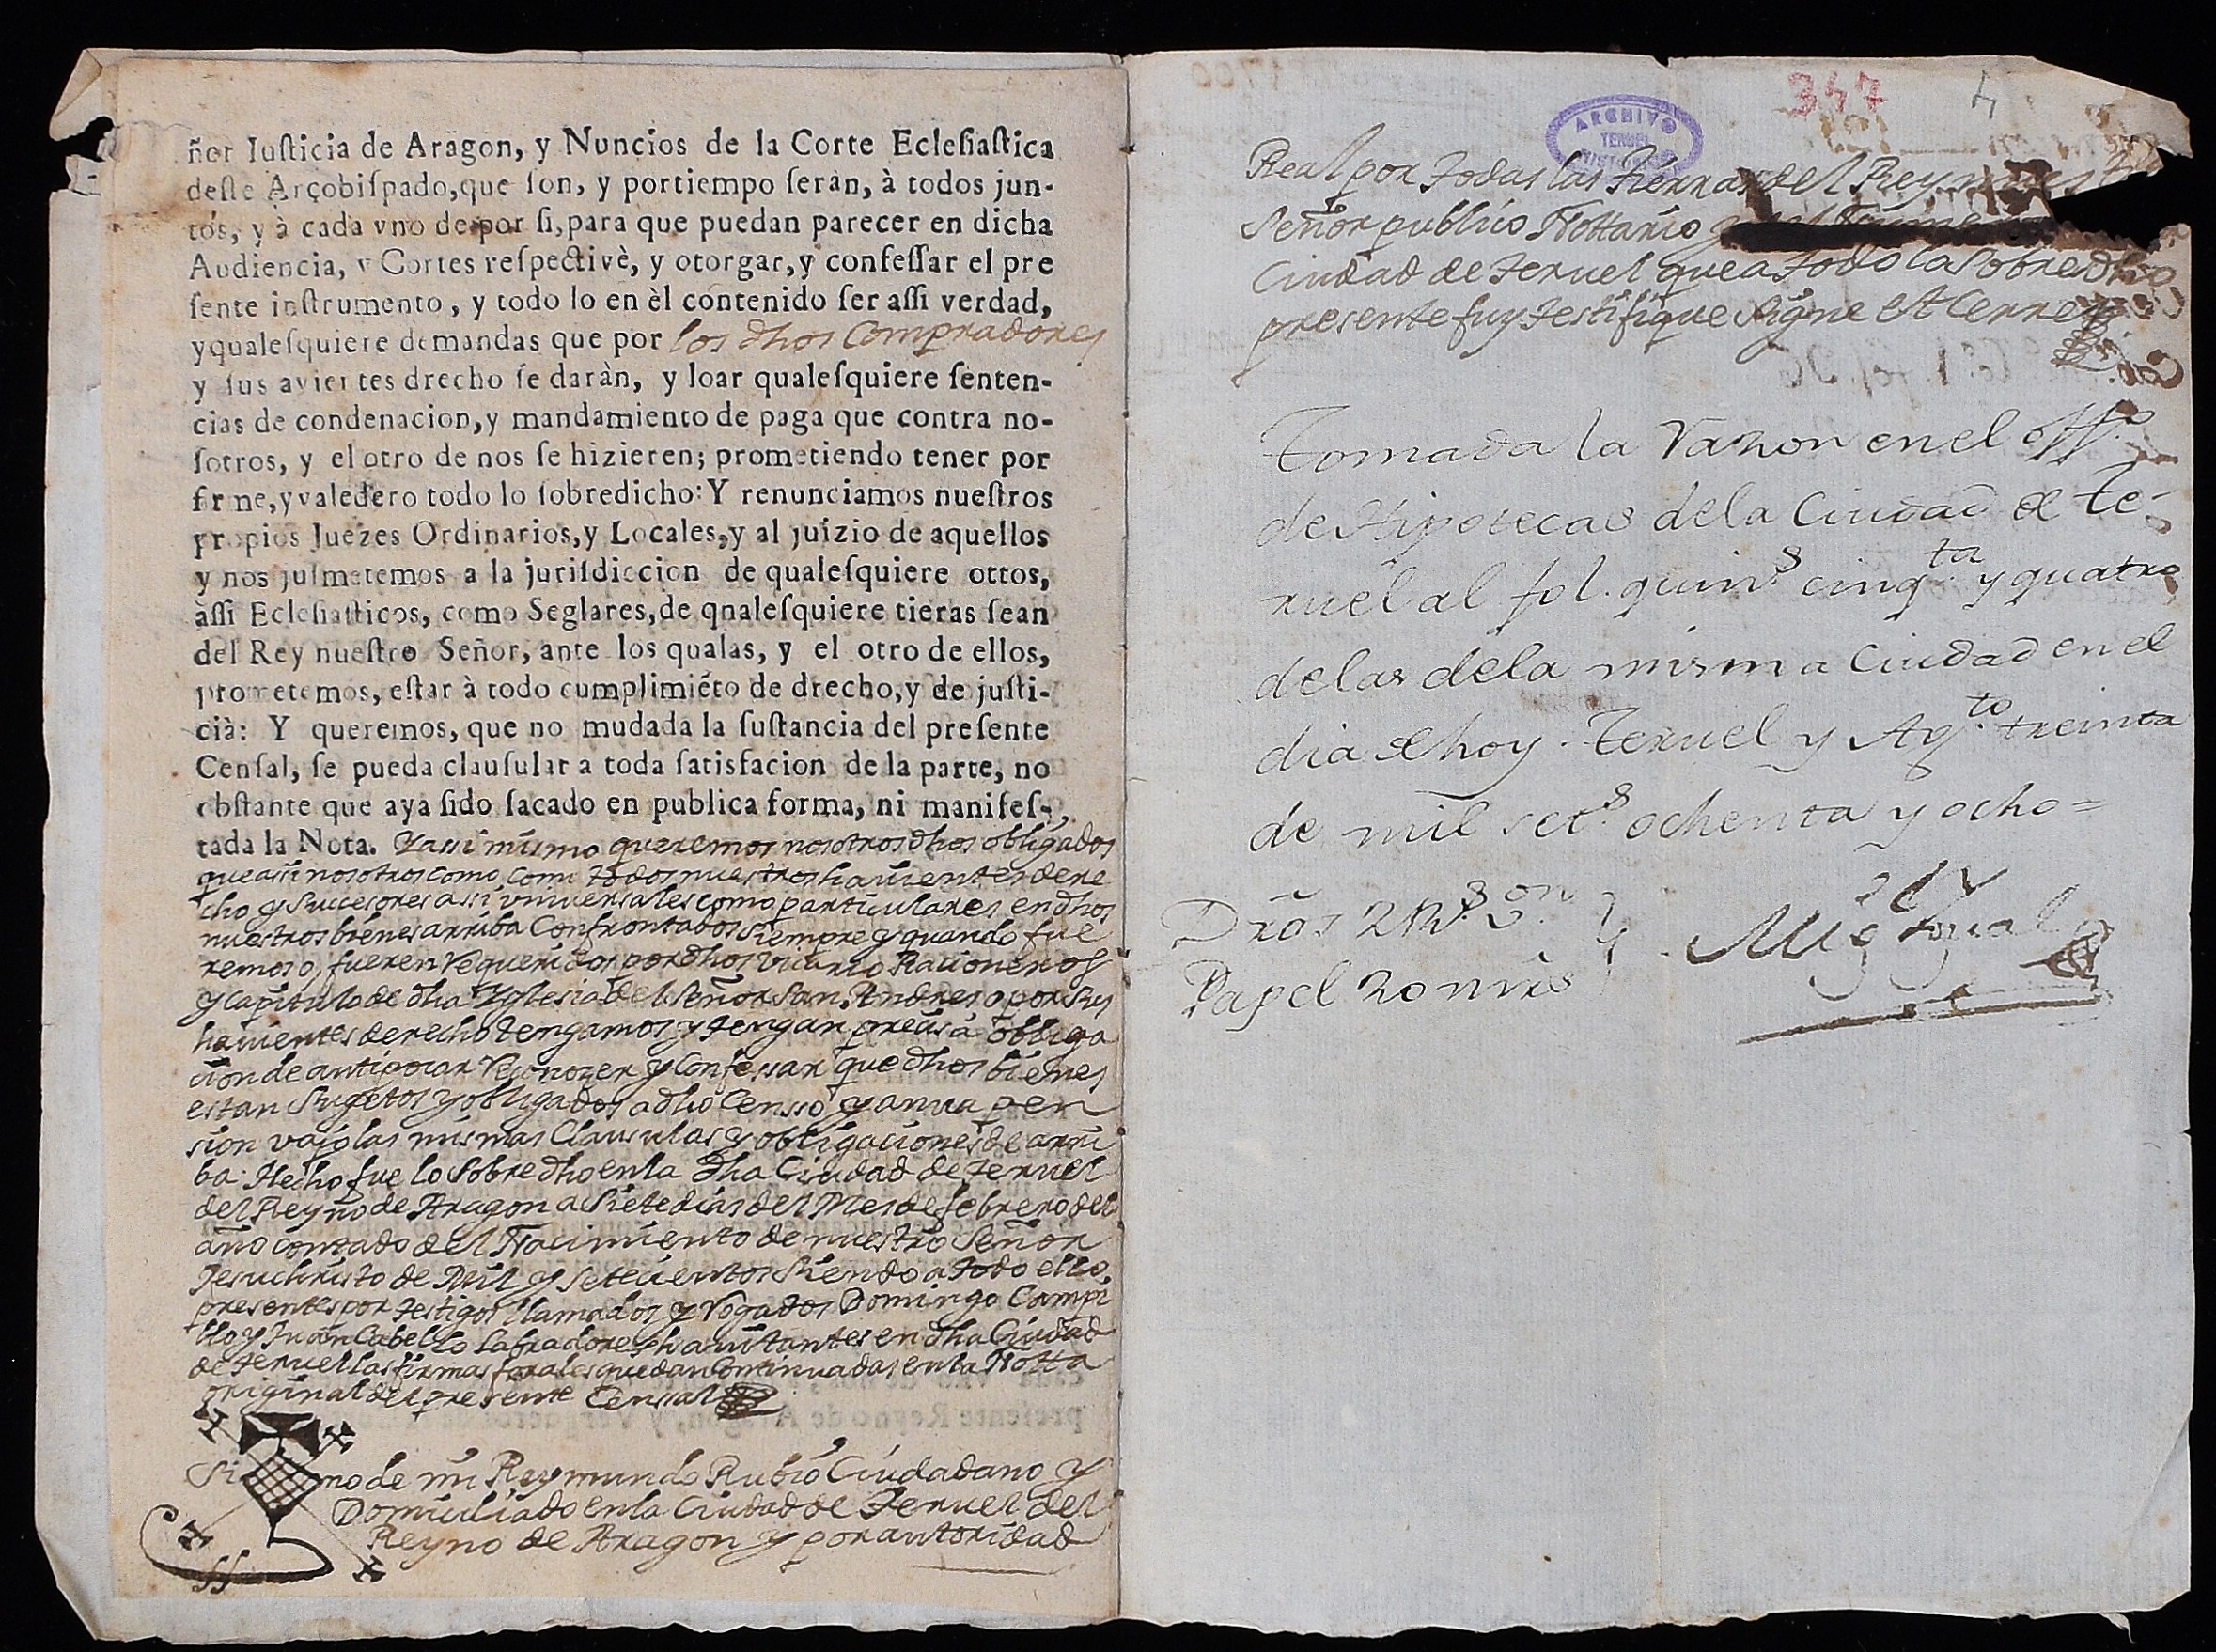 ñor Iuſticia de Aragon, y Nuncios de la Corte Ecleſiaſtica
deſte Arçobiſpado, que ſon, y portiempo ſeràn, à todos jun-
tos, y à cada vno de por ſi, para que puedan parecer en dicha
Audiencia, y Cortes reſpectivè, y otorgar, y confeſſar el pre
ſente inſtrumento, y todo lo en èl contenido ſer aſſi verdad,
yqualeſquiere demandas que por los dhos Compradores
y ſus avientes drecho ſe daràn, y loar qualeſquiere ſenten-
cias de condenacion, y mandamiento de paga que contra no-
ſotros, y el otro de nos ſe hizieren; prometiendo tener por
firme, y valedero todo lo ſobredicho: Y renunciamos nueſtros
propios Juezes Ordinarios, y Locales, y al juizio de aquellos
y nos juſmetemos a la juriſdiccion de qualeſquiere otros,
àſſi Ecleſiaſticos, como Seglares, de qnaleſquiere tieras ſean
del Rey nueſtro Señor, ante los qualas, y el otro de ellos,
prometemos, eſtar à todo cumplimiẽto de drecho, y de juſti-
cià: Y queremos, que no mudada la ſuſtancia del preſente
Cenſal, ſe pueda clauſular a toda ſatisfacion de la parte, no
obſtante que aya ſido ſacado en publica forma, ni manifeſ-
tada la Nota. Y assi mismo queremos nosotros dhos obligados
que assi nosotros como todos nuestros havientes dere
cho y Succesores assi vniversales como particulares en dhos
nuestros bienes arriba Confrontados siempre y quando fue
remos o, fueren Requeridos por dhos Vicario Racioneros
y Capitulo de dha Yglesia del Señor San Andres o por Sus
havientes derecho tengamos y tengan precisa obliga
cion de antipocar Reconozer y Confessar que dhos bienes
estan Sugetos y obligados a dho Censso y annua pen
sion vajo las mismas Clausulas y obligaciones de arri
ba. Hecho fue lo Sobre dho en la dha Ciudad de Teruel
del Reyno de Aragon a Siete dias del Mes de febrero del
año contado del Nacimiento de nuestro Señor
Jesuchristo de Mil y Setecientos Siendo a todo ello
presentes por testigos llamados y Rogados Domingo Campi
llo y Juan Cabello labradores havitantes en dha Ciudad
de Teruel las firmas forales quedan Continuadas en la Notta
original del presente Censsal
Si no de mi Reymundo Rubio Ciudadano y
Domiciliado en la Ciudad de Teruel del
Reyno de Aragon y por autoridad
347 4
ARCHIVO
TERUEL
Real por todas las tierras del Rey nuestro
Señor publico Nottario
Ciudad de Teruel que a todo lo Sobredho
presente fuy testifique Signe et Cerre
Tomada la Razon en el off.o
de Hipotecas de la Ciudad de Te-
ruel al fol. quin.s cinq.ta y quatro
de las de la misma Ciudad en el
dia de hoy. Teruel y Ag.to treinta
de mil set.s ochenta y ocho=
Dros 2 R.s on
Papel 20 mrs
Mig